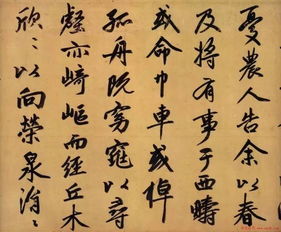 憂農人告余以春
及將有事于西疇
或命巾車或棹
孤舟既窈窕以尋
壑亦崎嶇而經丘木
欣〻以向榮泉涓〻